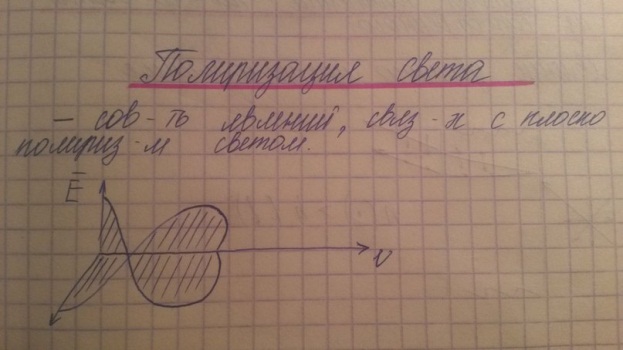 Поляризация света
— сов-ть явлений, связ-х с плоско
поляриз-м светом.
E
v